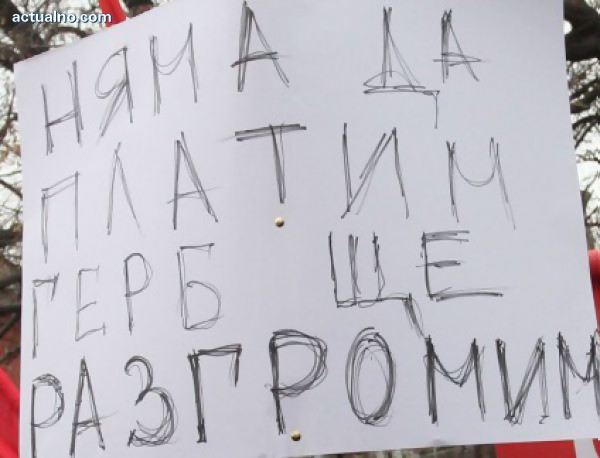 actualno.com
НЯМА ДА
ПЛАТИМ
ГЕРБ ЩЕ
РАЗГРОМИМ